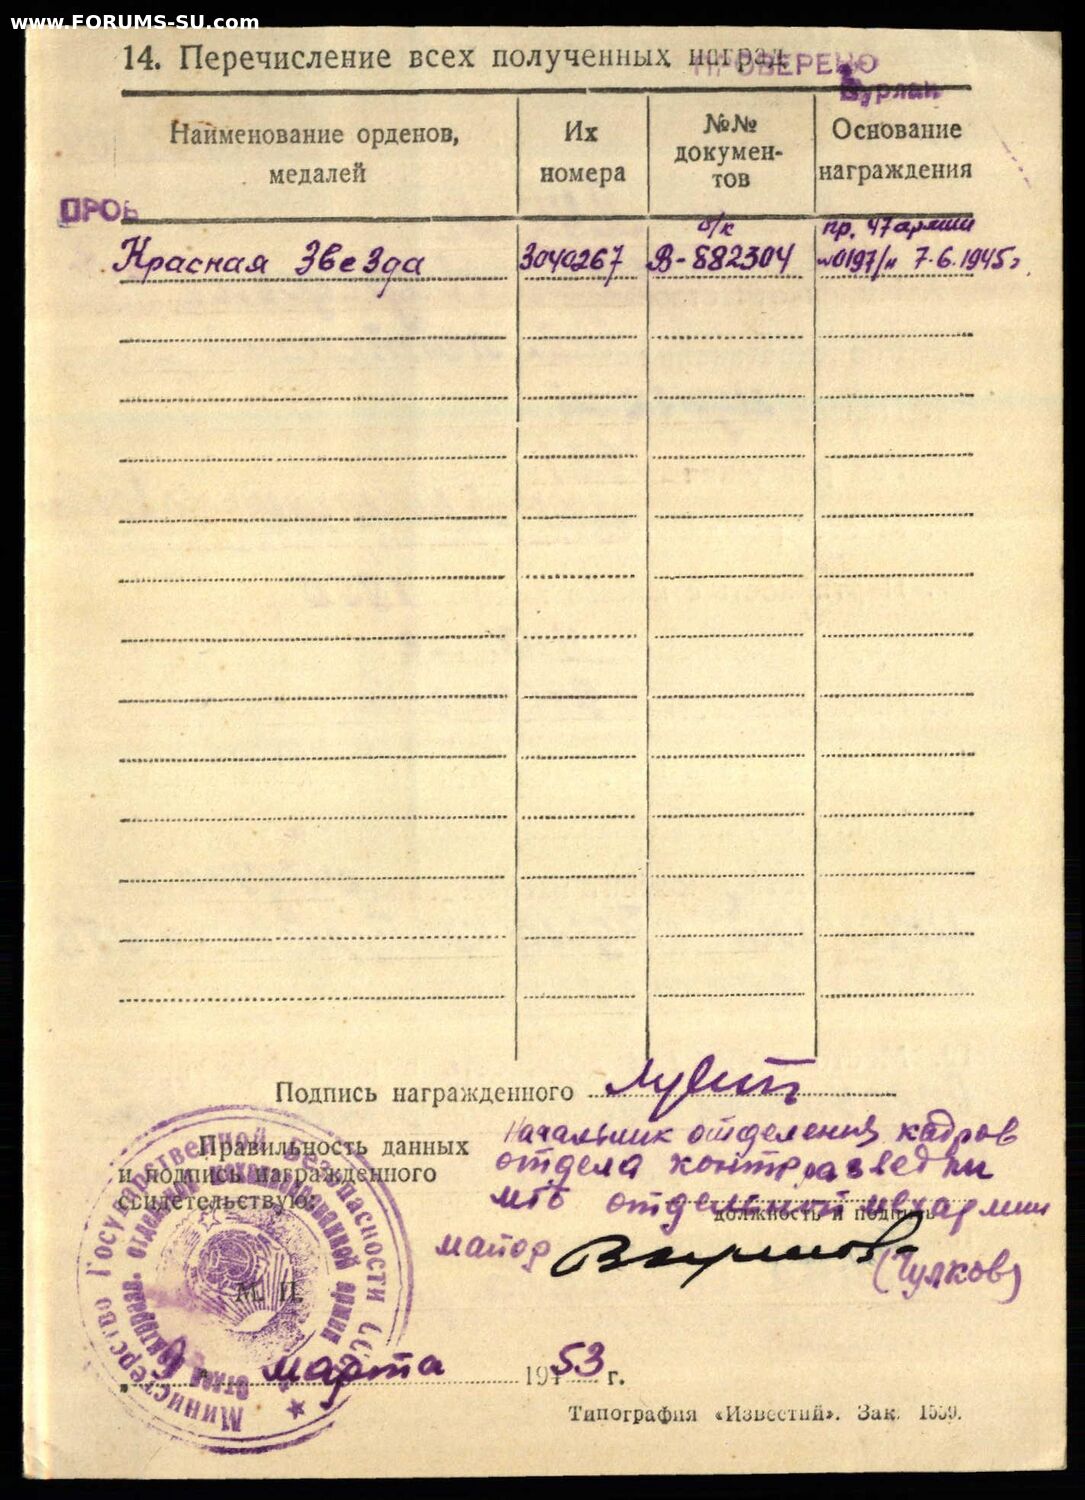 www.FORUMS-SU.com
14. Перечисление всех полученных наград
ПРОВЕРЕНО
Бурлак
Наименование орденов, медалей
Их номера
№№ докумен-тов
Основание награждения
ПРОВ
Красная Звезда
3040267
о/к
В-882304
пр. 47 армии
№0197/н 7.6.1945г
Подпись награжденного
Правильность данных
и подпись награжденного
свидетельствую:
Начальник отделения кадров
отдела контрразведки
МГБ отдельной мехармии
должность и подпись
майор
(Чулков)
М. П.
Министерство Государственной Безопасности СССР
Отдел контрразв. отдельной механизированной армии
„9" марта 1953 г.
Типография «Известий». Зак. 1559.